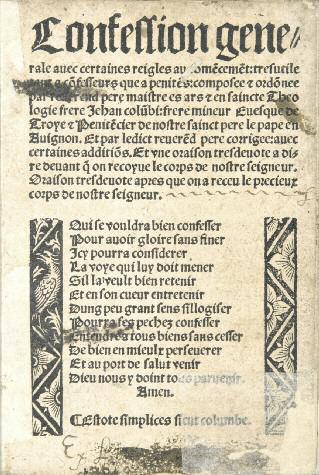 Confession gene⸗
rale auec certaines reigles au cõmẽcemẽt: tresutile
cõfesseurs que a penitẽs: composee & ordõnee
par reuerend pere maistre es ars & en saincte Theo
logie frere Jehan colũbi: frere mineur Euesque de
Troye & Penitẽcier de nostre sainct pere le pape en
Auignon. Et par ledict reuerẽd pere corrigee: auec
certaines additiõs. Et vne oraison tresdeuote a di-
re deuant q̃ on recoyue le corps de nostre seigneur.
Oraison tresdeuote apres que on a receu le precieux
corps de nostre seigneur.
Qui se vouldra bien confesser
Pour auoir gloire sans finer
Icy pourra considerer
La voye qui luy doit mener
Sil la veult bien retenir
Et en son cueur entretenir
Dung peu grant sens sillogiser
Pourra ses pechez confesser
Entendre a tous biens sans cesser
De bien en mieulx perseuerer
Et au port de salut venir
Dieu nous y doint tous paruenir.
Amen.
¶ Estote simplices sicut columbe.
Ex